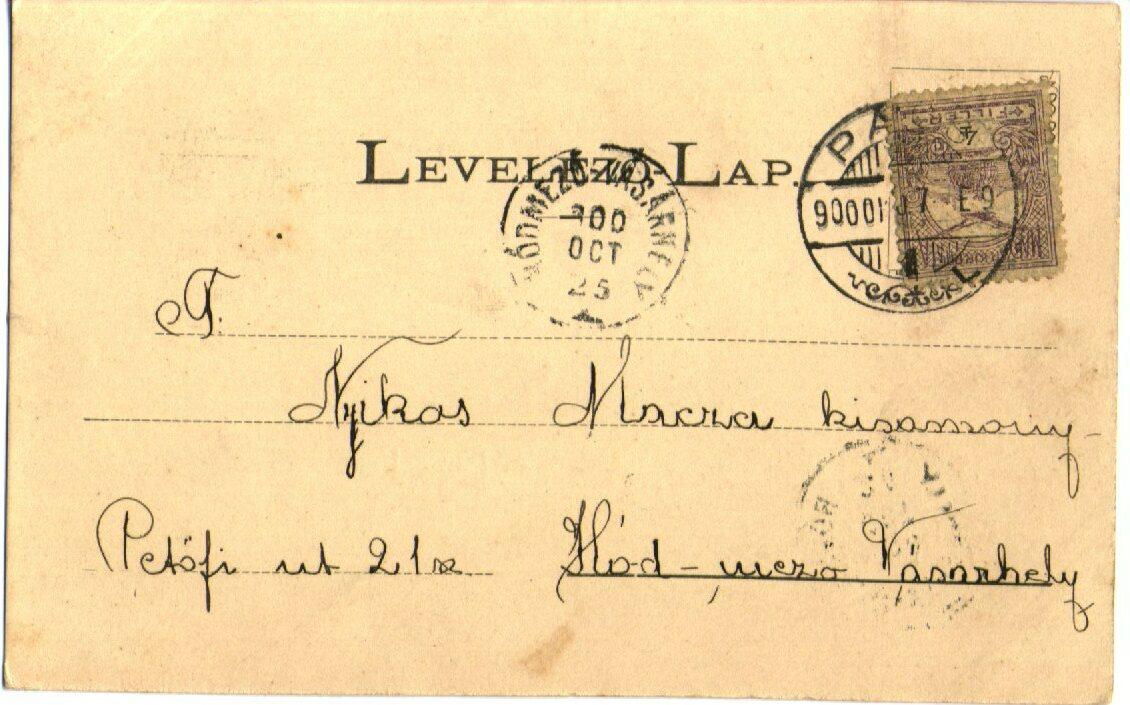 LEVELEZŐ-LAP.
HÓDMEZŐ-VÁSÁRHELY
900
OCT
25
PÁ
9000
E9
4
FILLÉR
T.
Nyikos Macza kisasszony-
Petőfi ut 21
Hód-mező Vásárhely